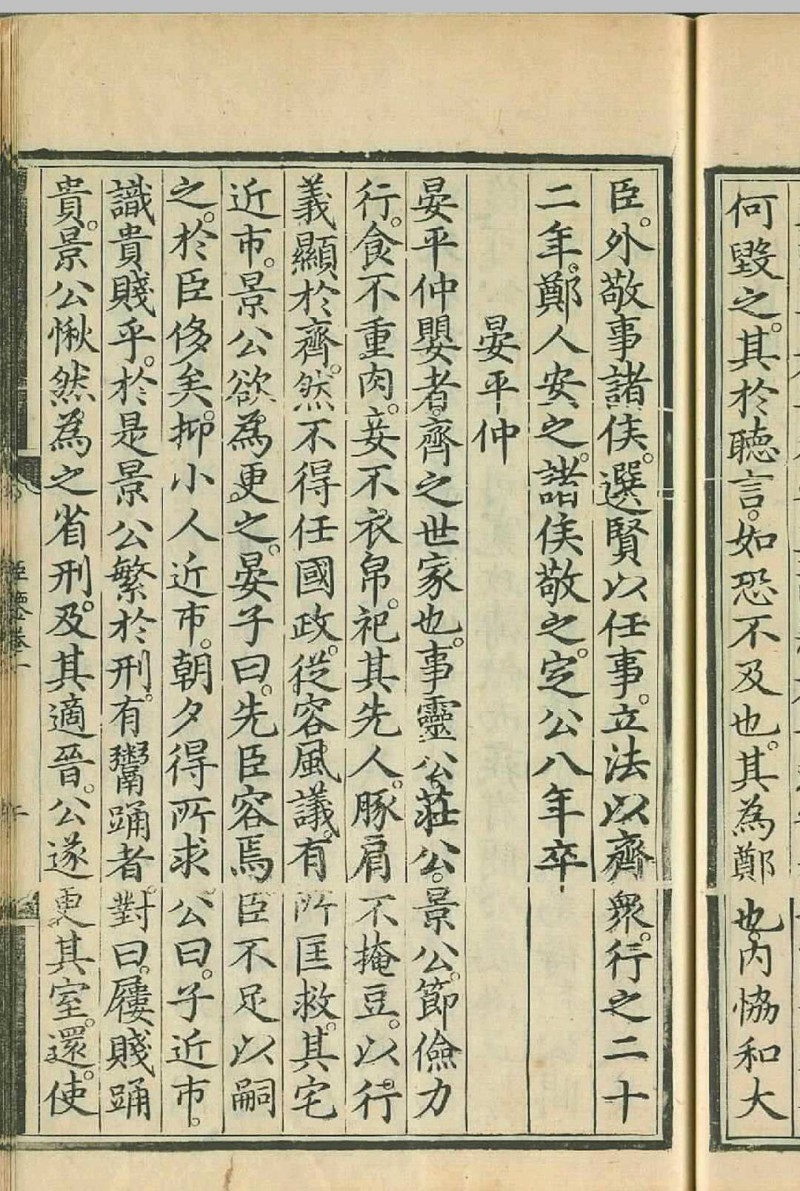 何毀之。其於聽言。如恐不及也。其為鄭也。內協和大
臣。外敬事諸侯。選賢以任事。立法以齊衆。行之二十
二年。鄭人安之。諸侯敬之。定公八年卒。
晏平仲
晏平仲嬰者。齊之世家也。事靈公莊公。景公。節儉力
行。食不重肉。妾不衣帛。祀其先人。豚肩不掩豆。以行
義顯於齊。然不得任國政。從容風議。有所匡救。其宅
近市。景公欲為更之。晏子曰。先臣容焉。臣不足以嗣
之。於臣侈矣。抑小人近市。朝夕得所求。公曰。子近市。
識貴賤乎。於是景公繁於刑。有鬻踊者。對曰。屨賤踊
貴。景公愀然。為之省刑。及其適晉。公遂更其室。還。使